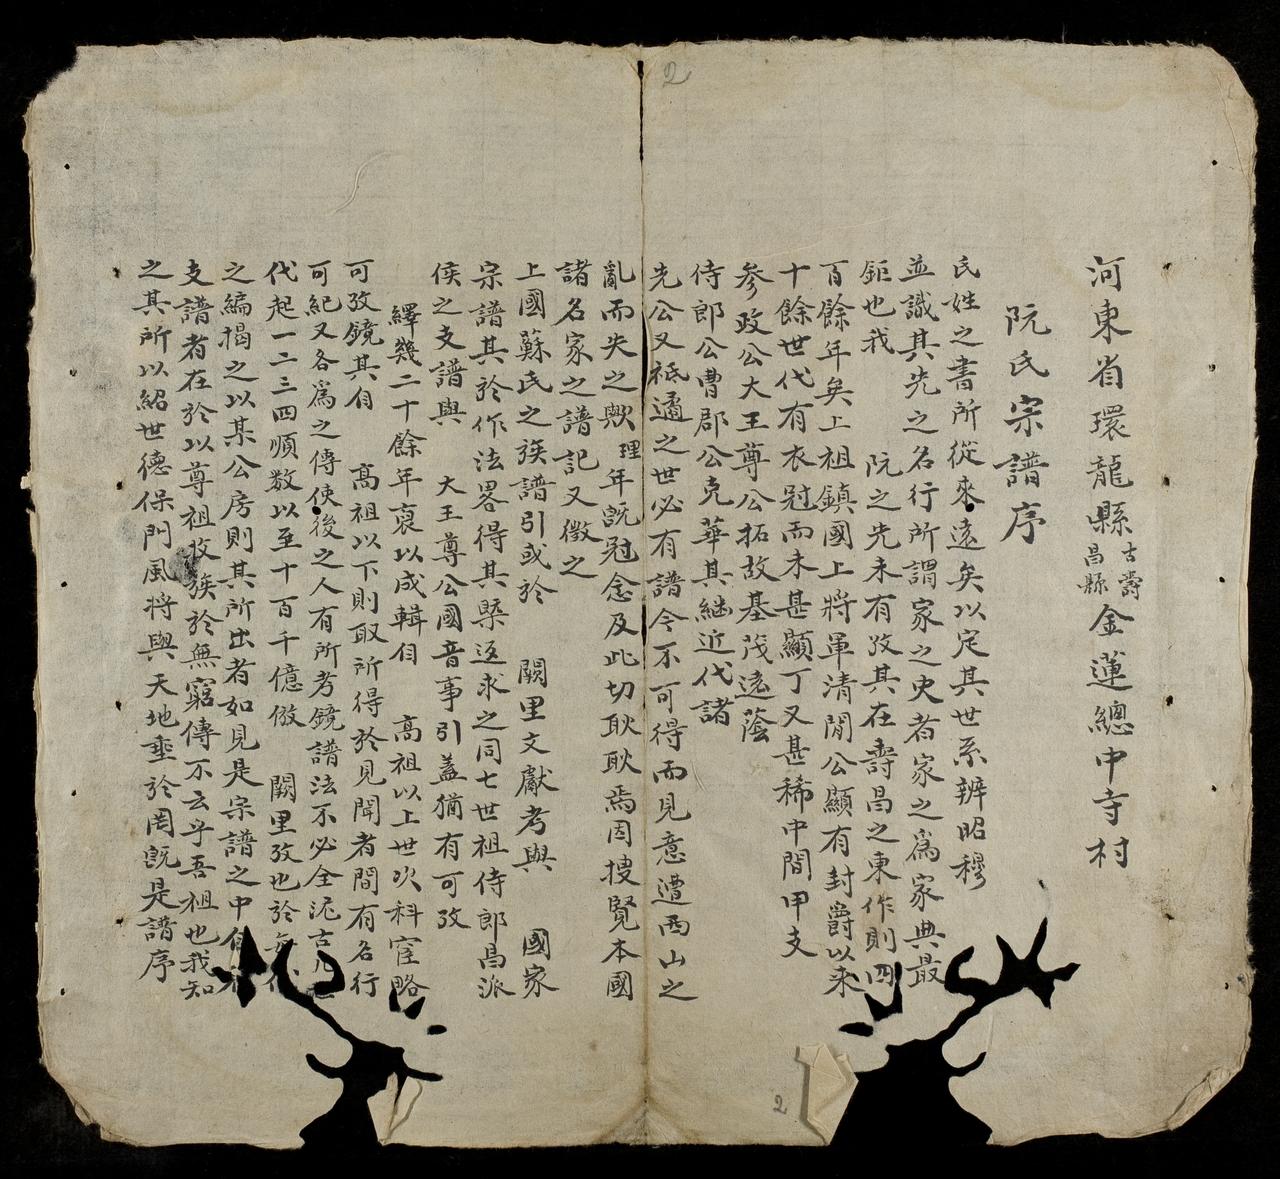 2
河東省環龍縣古壽昌縣金蓮總中寺村
阮氏宗譜序
氏姓之書所從來遠矣以定其世系辨昭穆
並識其先之名行所謂家之史者家之爲家典最
鉅也我 阮之先未有攷其在壽昌之東作則四
百餘年矣上祖鎮國上將軍清閒公顯有封爵以來
十餘世代有衣冠而未甚顯丁又甚稀中間甲支
參政公大王尊公拓故基茂遠蔭
侍郎公曹郡公克華其継近代諸
先公又祗遹之世必有譜今不可得而見意遭西山之
亂而失之歟理年既冠念及此切耿耿焉因搜覽本國
諸名家之譜記又徵之
上國蘇氏之族譜引或於 闕里文獻考與 國家
宗譜其於作法畧得其槩返求之同七世祖侍郎昌派
侯之支譜與 大王尊公國音事引盖猶有可攷
繹幾二十餘年裒以成輯自 高祖以上世次科宦略
可攷鏡其自 高祖以下則取所得於見聞者間有名行
可紀又各爲之傳使後之人有所考鏡譜法不必全泥古
代起一二三四順数以至十百千億倣 闕里攷也於
之編揭之以某公房則其所出者如見是宗譜之中
支譜者在於以尊祖收族於無窮傳不云乎吾祖也我知
之其所以紹世德保門風将與天地垂於罔既是譜序
2